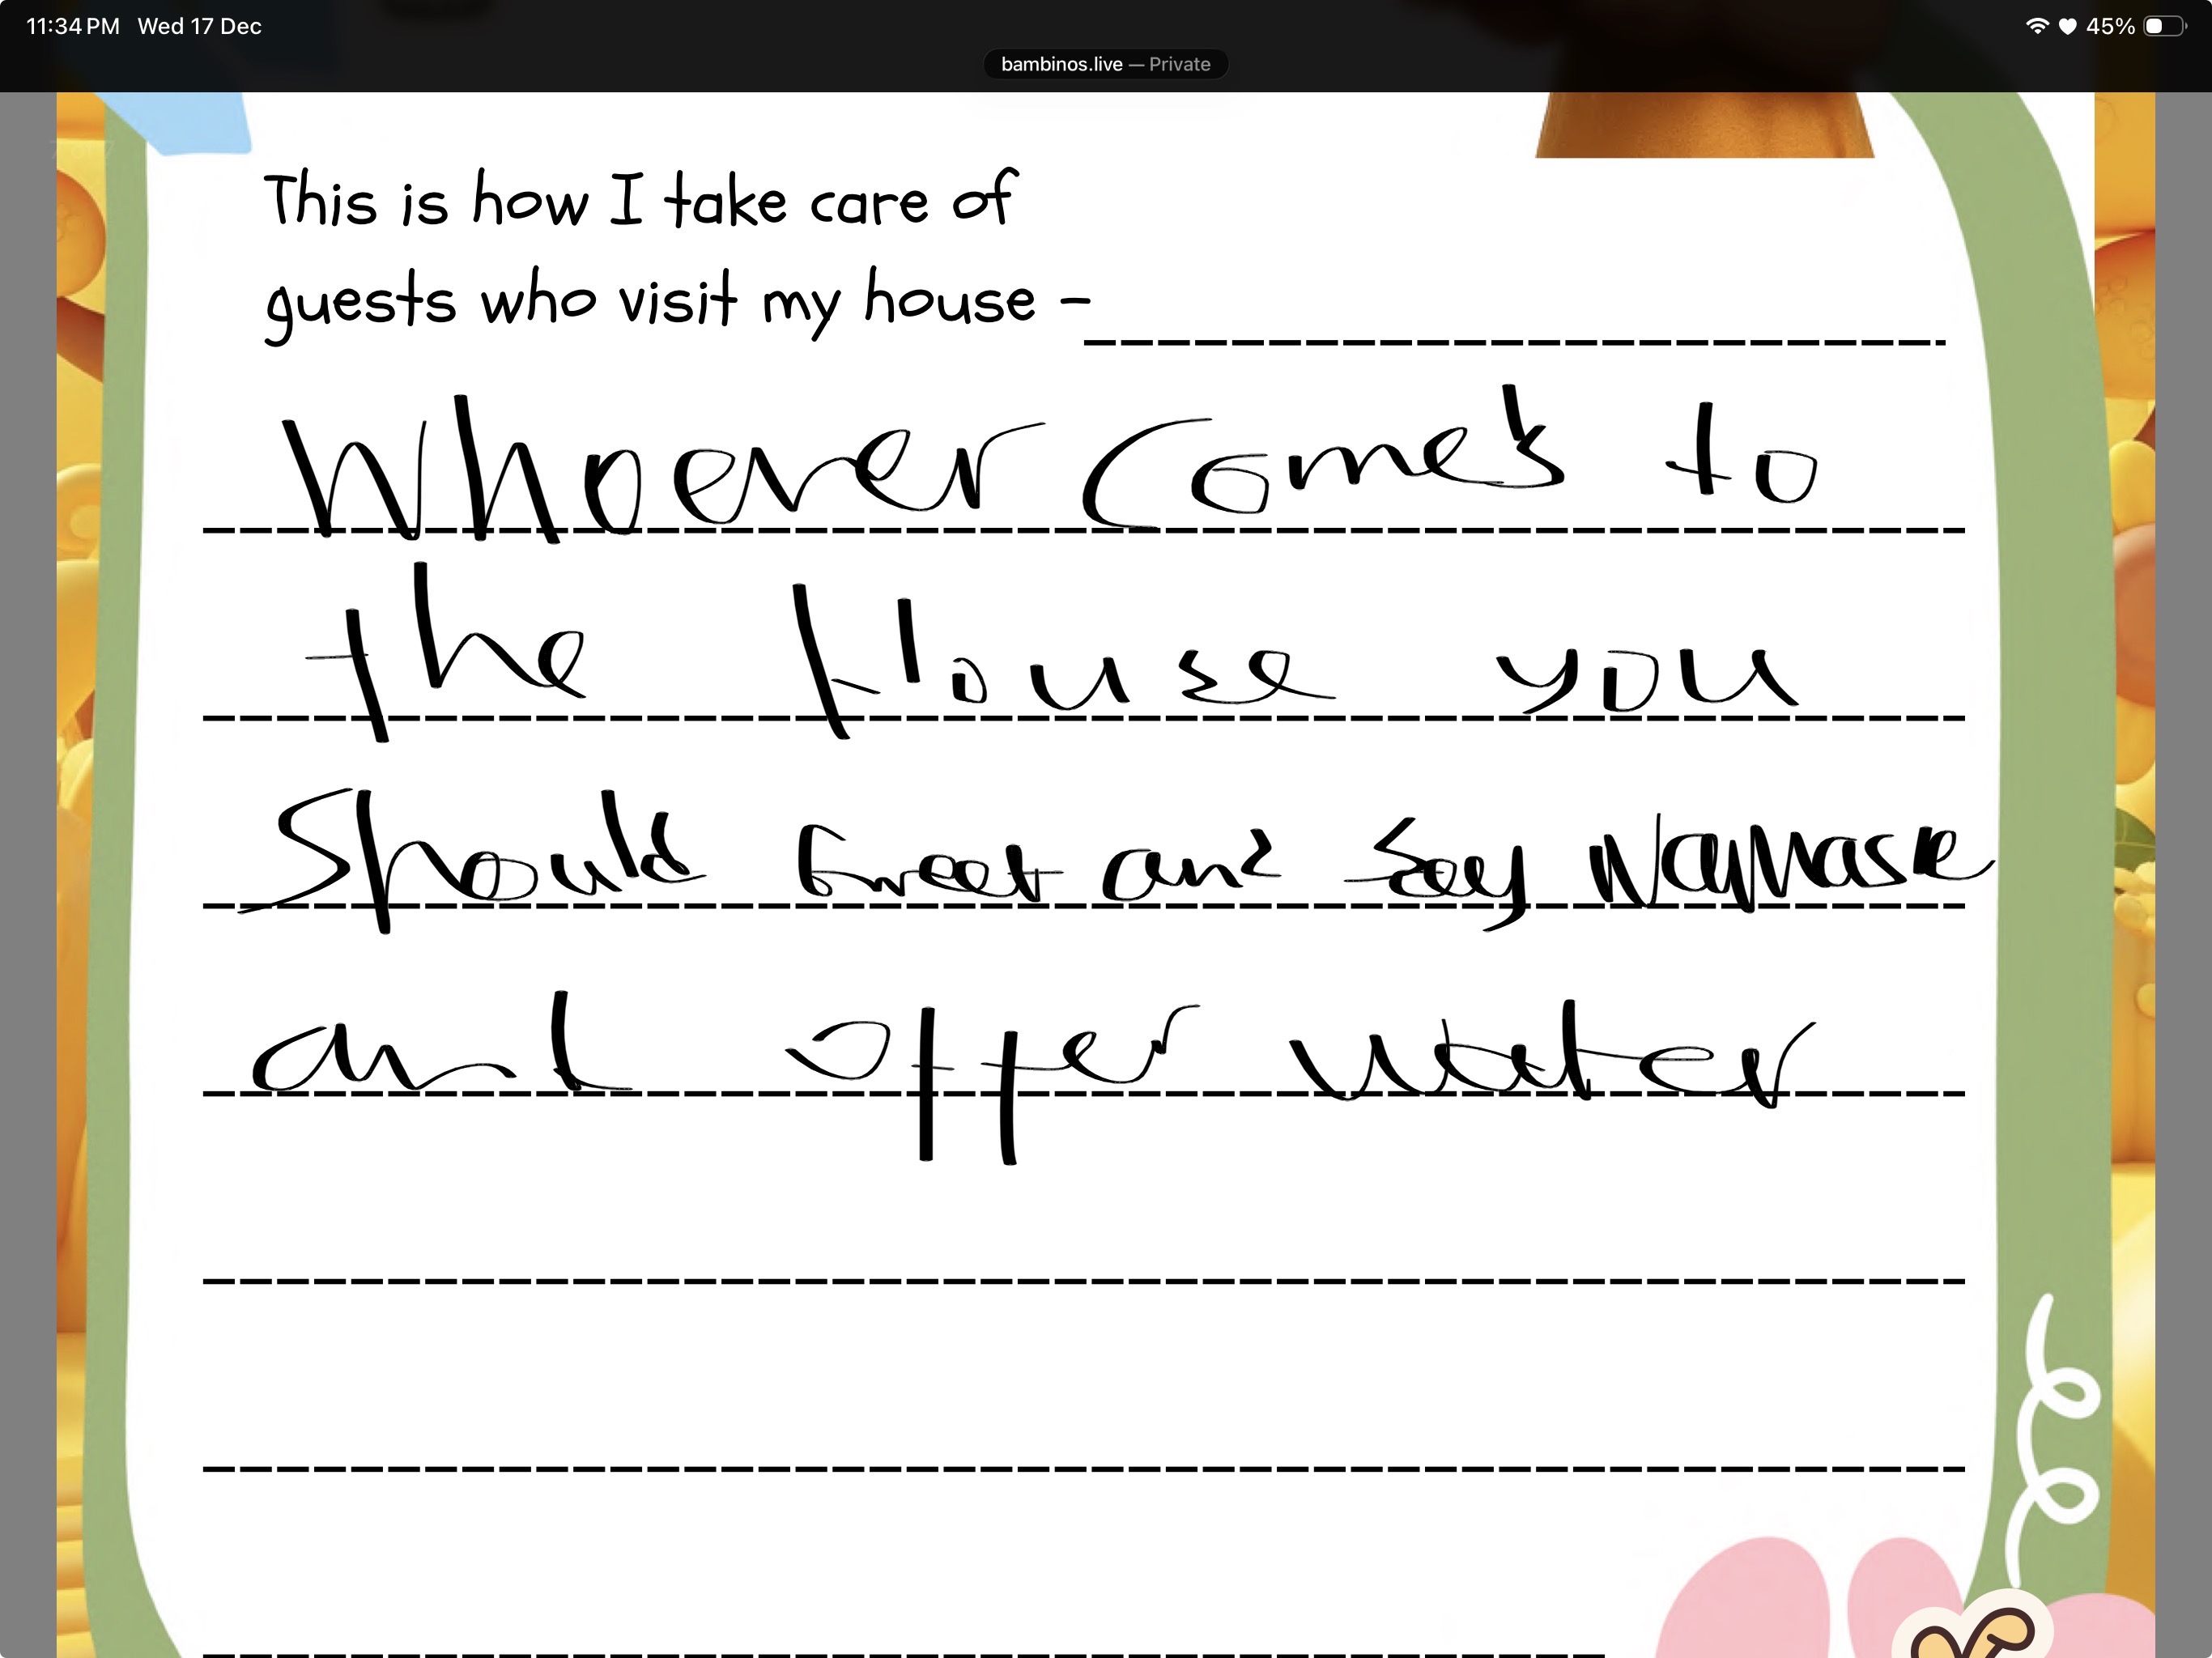 11:34 PM Wed 17 Dec 45%
bambinos.live — Private
This is how I take care of
guests who visit my house -
Whoever Comes to
the House you
Should Greet and Say Namaste
and offer water